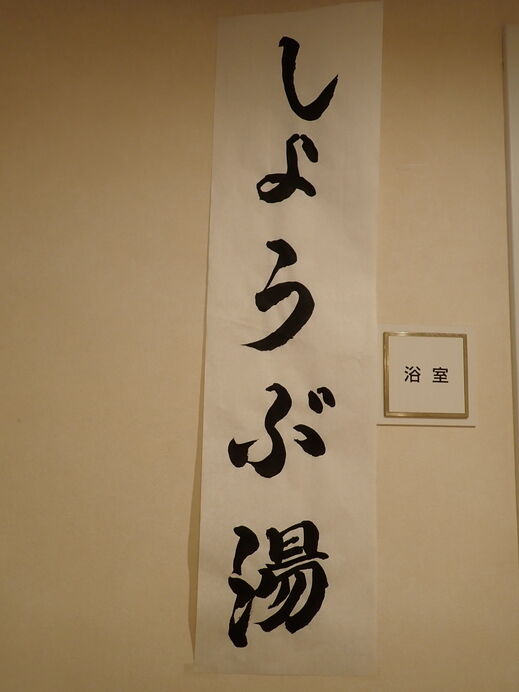 しょうぶ湯
浴室